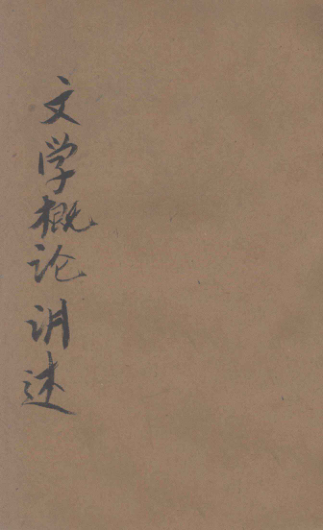 文学概论讲述